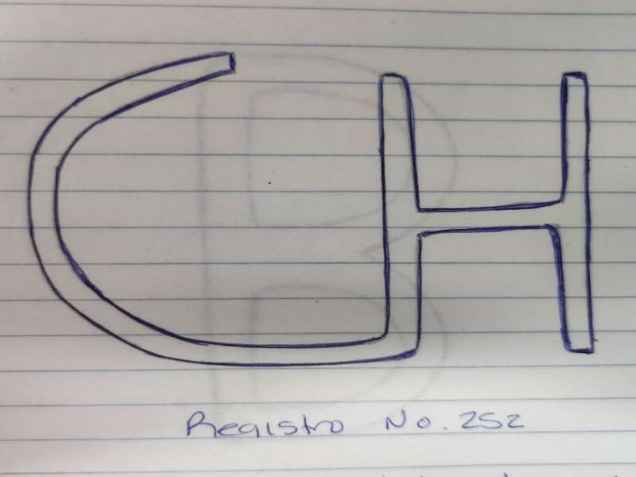 CH
Registro No. 252